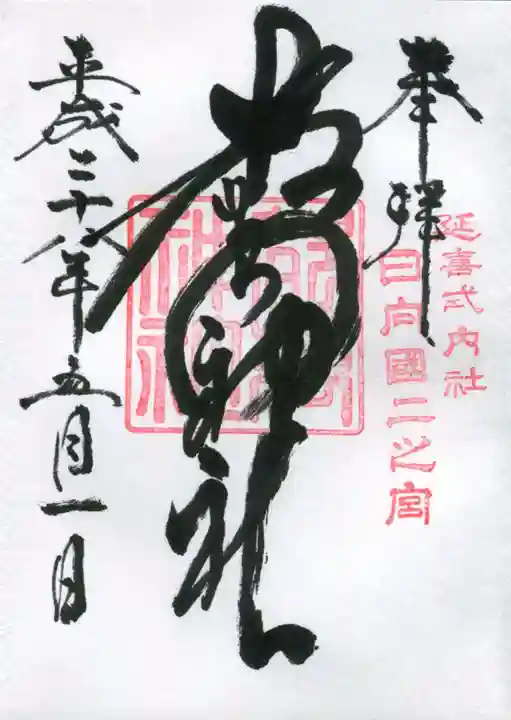 奉拝
延喜式内社
日向國二之宮
都萬神社
平成二十八年五月一日